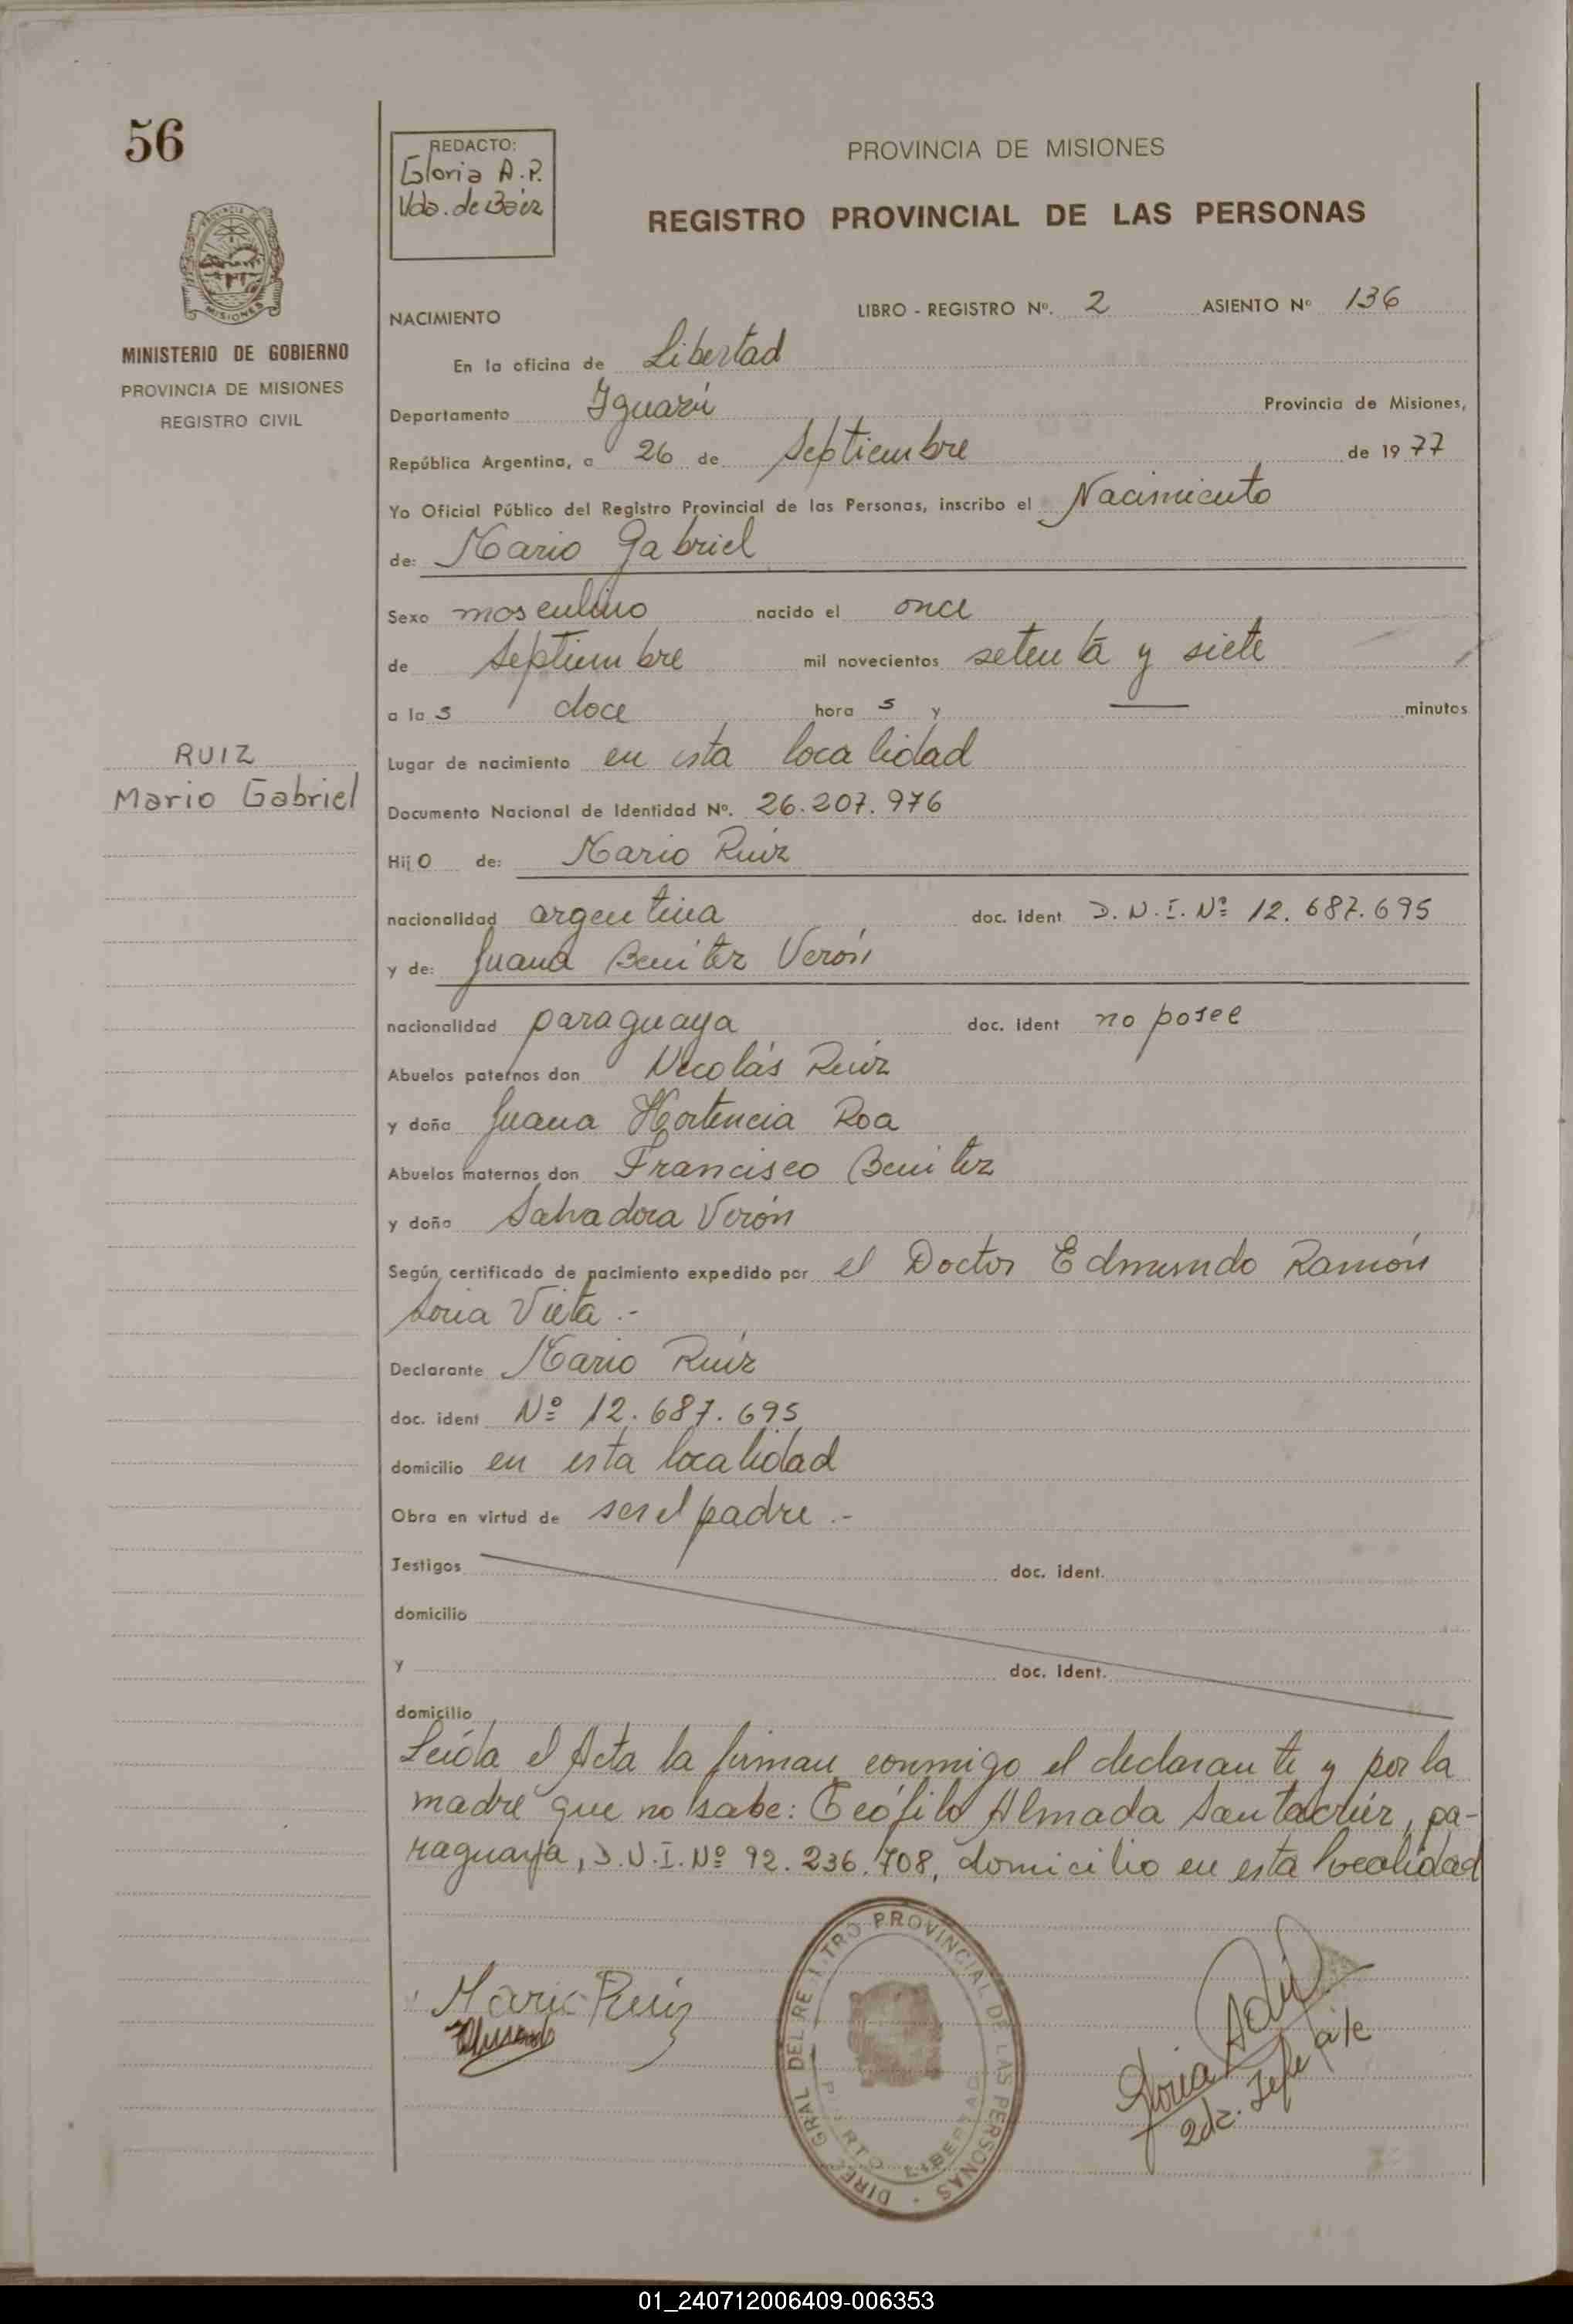 56
REDACTO:
Gloria A.P.
Vda. de Báez
PROVINCIA DE MISIONES
REGISTRO PROVINCIAL DE LAS PERSONAS
MISIONES
MINISTERIO DE GOBIERNO
PROVINCIA DE MISIONES
REGISTRO CIVIL
NACIMIENTO
LIBRO - REGISTRO Nº. 2 ASIENTO Nº 136
En la oficina de Libertad
Departamento Iguazú Provincia de Misiones,
República Argentina, a 26 de Septiembre de 1977
Yo Oficial Público del Registro Provincial de las Personas, inscribo el Nacimiento
de: Mario Gabriel
Sexo masculino nacido el once
de Septiembre mil novecientos setenta y siete
a las doce horas y — minutos
RUIZ
Mario Gabriel
Lugar de nacimiento en esta localidad
Documento Nacional de Identidad Nº. 26.207.976
Hijo de: Mario Ruiz
nacionalidad argentina doc. ident D.N.I. Nº 12.687.695
y de: Juana Benitez Verón
nacionalidad paraguaya doc. ident no posee
Abuelos paternos don Nicolás Ruiz
y doña Juana Hortencia Roa
Abuelos maternos don Francisco Benitez
y doña Salvadora Verón
Según certificado de nacimiento expedido por el Doctor Edmundo Ramón
Soria Vieta .-
Declarante Mario Ruiz
doc. ident Nº 12.687.695
domicilio en esta localidad
Obra en virtud de ser el padre .-
Testigos doc. ident.
domicilio
y doc. ident.
domicilio
Leída el Acta la firman conmigo el declarante y por la
madre que no sabe: Teófilo Almada Santacrúz, pa-
raguaya, D.N.I. Nº 92.236.708, domicilio en esta localidad
Mario Ruiz
DIREC GRAL DEL REGISTRO PROVINCIAL DE LAS PERSONAS
PUERTO LIBERTAD
Jefe
01_240712006409-006353